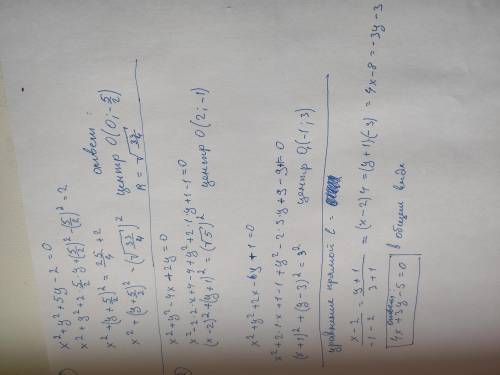 x² + y² + 5y - 2 = 0
x² + y² + 2 · 5/2 · y + (5/2)² - (5/2)² = 2
x² + (y + 5/2)² = 25/4 + 2 ответ:
x² + (y + 5/2)² = (√33/4)² центр O(0; -5/2)
R = √33/4
x² + y² - 4x + 2y = 0
x² - 2·2·x + 4 - 4 + y² + 2·1·y + 1 - 1 = 0
(x-2)² + (y+1)² = (√5)² центр O(2; -1)
x² + y² + 2x - 6y + 1 = 0
x² + 2·1·x + 1 - 1 + y² - 2·3·y + 9 - 9 + 1 = 0
(x+1)² + (y-3)² = 3² центр O₁(-1; 3)
уравнение прямой в =
x-2/-1-2 = y+1/3+1 = (x-2)4 = (y+1)(-3) = 4x - 8 = -3y - 3
ответ:
4x + 3y - 5 = 0 в общем виде